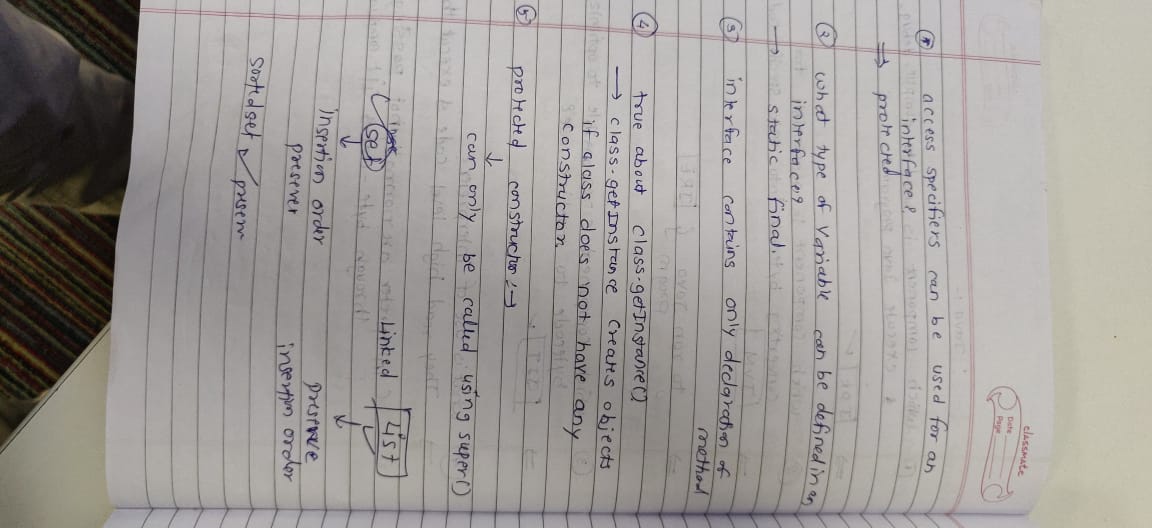 classmate
Date
Page
① access specifiers can be used for an
interface?
⇒ protected
② what type of variable can be defined in an
interface?
→ static final.
③ interface contains only declaration of
method
④ true about class.getInstance()
→ class.getInstance creates objects
if class does not have any
constructor
⑤ protected constructor :→
↓
can only be called using super()
Set Linked List
↓ ↓
insertion order preserve
presever insertion order
Sortedset